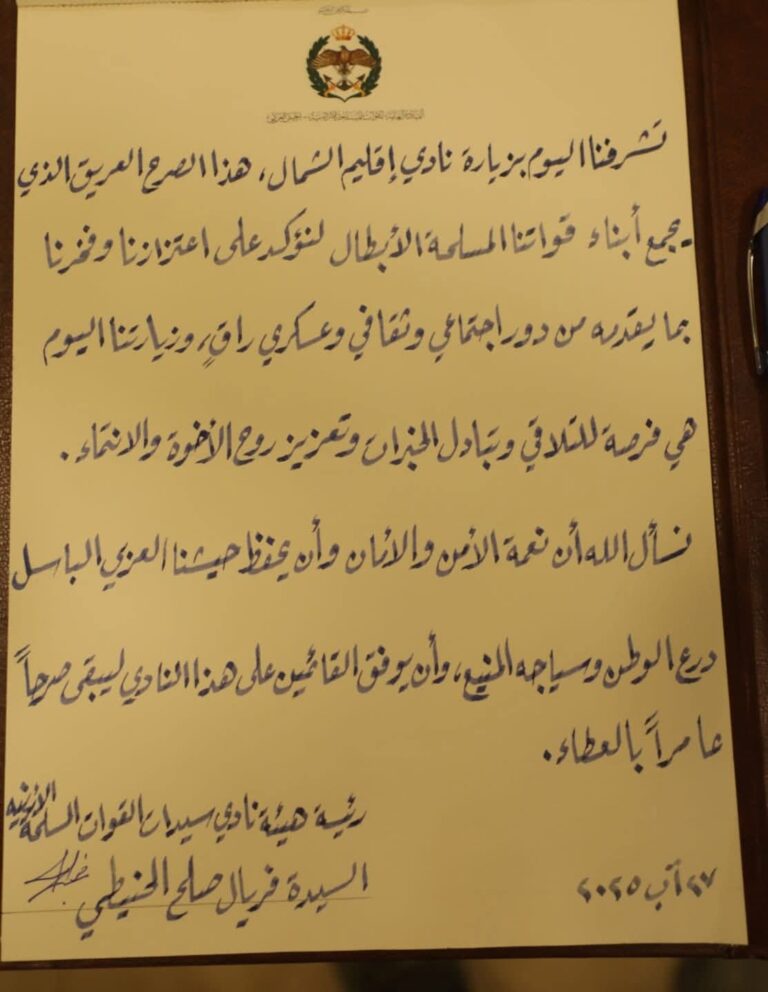 تشرفنا اليوم بزيارة نادي إقليم الشمال، هذا الصرح العريق الذي
يجمع أبناء قواتنا المسلحة الأبطال لنؤكد على اعتزازنا وفخرنا
بما يقدمه من دور اجتماعي وثقافي وعسكري راقٍ، وزيارتنا اليوم
هي فرصة للتلاقي وتبادل الخبرات وتعزيز روح الأخوة والانتماء.
نسأل الله أن نعمة الأمن والأمان وأن يحفظ جيشنا العربي الباسل
درع الوطن وسياجه المنيع، وأن يوفق القائمين على هذا النادي ليبقى صرحاً
عامراً بالعطاء.
رئيسة هيئة نادي سيدات القوات المسلحة الأردنية
السيدة فريال صلح الحنيطي
٢٧ آب ٢٠٢٥